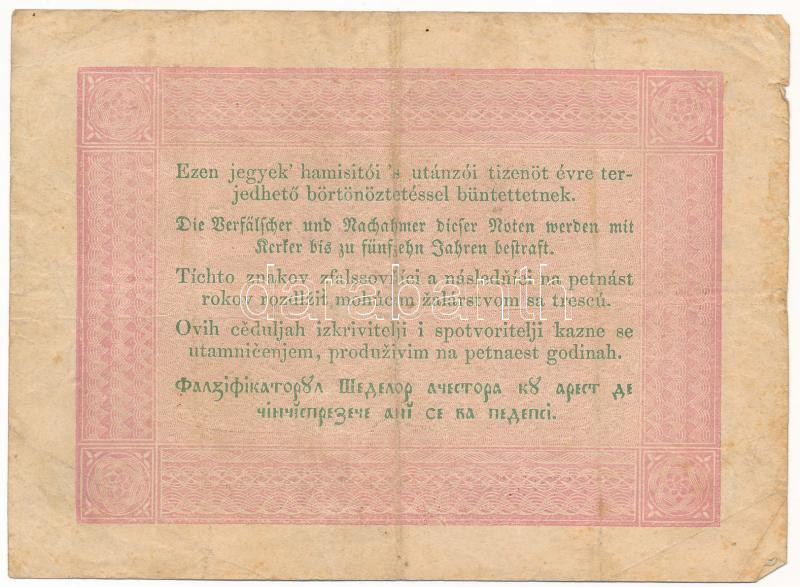 Ezen jegyek' hamisitói 's utánzói tizenöt évre ter-
jedhető börtönöztetéssel büntettetnek.
Die Verfälscher und Nachahmer dieser Noten werden mit
Kerker bis zu fünfzehn Jahren bestraft.
Tíchto znakov zfalssovňíci a násladňíci na petnást
rokov rozdlžit mohúcim žalárstvom sa trescú.
Ovih cěduljah izkrivitelji i spotvoritelji kazne se
utamničenjem, produživim na petnaest godinah.
Фалзіфікаторꙋл Шеделор ачестора кꙋ арест де
чінчĭспрезече анĭ се ва педепсі.
darabanth